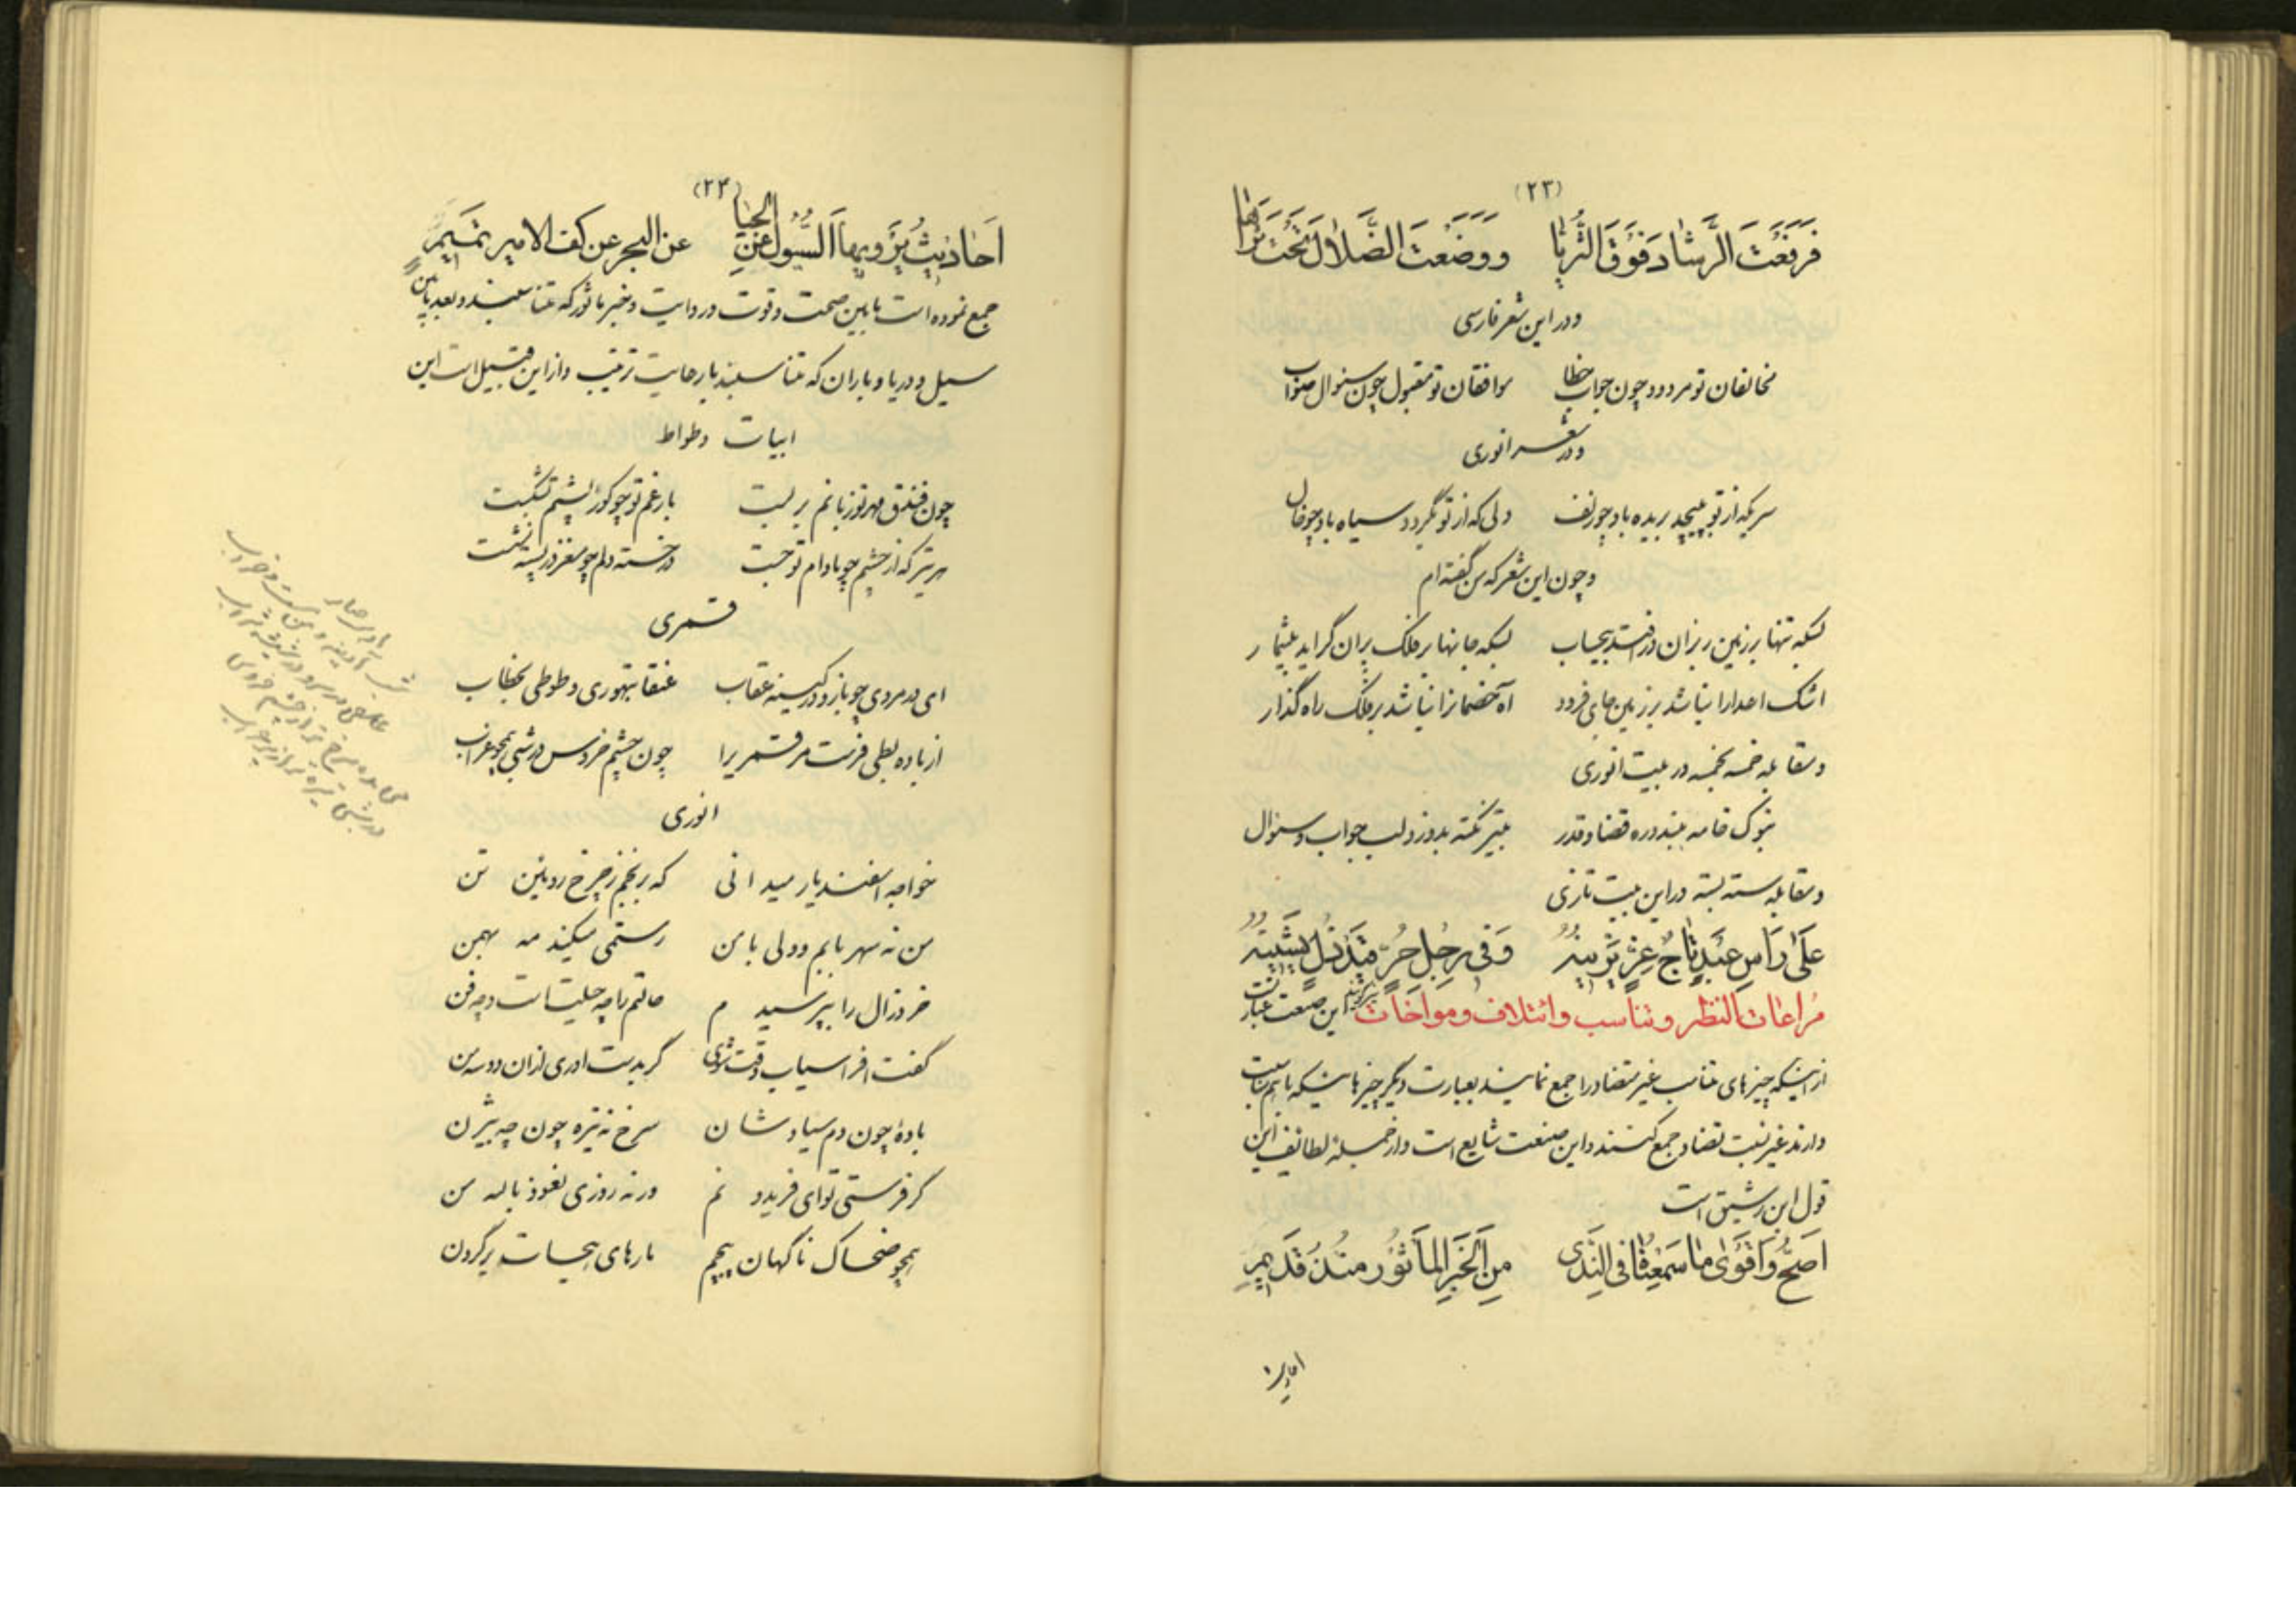 (۲۳)
فَرَفَعْتَ الرَّشادَ فَوْقَ الثُّرَیّا ووَضَعْتَ الضَّلالَ تَحْتَ ثَراها
ودر این شعر فارسی
مخالفان تو مردود چون جواب خطا موافقان تو مقبول چون سئوال صواب
ودر شعر انوری
سریکه از تو بپیچد بریده باد چو زلف دلی که از تو بگردد سیاه باد چو خال
و چون این شعر که من گفته ام
بسکه تنها بر زمین ریزان در افتد بیحساب بسکه جانها بر فلک پران گراید بیشمار
اشک اعدا را نباشد بر زمین جای فرود آه خصمانرا نباشد بر فلک راه گذار
ومقابله خمسه بخمسه در بیت انوری
بنوک خامه ببندد ره قضا و قدر بتیر نکته بدوزد لب جواب و سئوال
ومقابله سته بسته در این بیت تازی
عَلی رَأسِ عَبْدٍ تاجُ عِزٍّ یَزینُهُ وَفی رِجْلِ حُرٍّ قَیْدُ ذُلٍّ یَشینُهُ
مُراعات النظیر و تناسب و ائتلاف ومواخات این صنعت عبارتست
از اینکه چیزهای متناسب غیر متضاد را جمع نمایند بعبارت دیگر چیزهائیکه باهم مناسبت
دارند غیر نسبت تضاد جمع کنند و این صنعت شایع است و از جمله لطائف این
قول ابن رشیق است
اَصَحُّ وَاَقْوی ما سَمِعْناهُ فی النَّدی مِنَ الْخَبَرِ المَأثُورِ مُنْذُ قَدیمٍ
احادیث
(۲۴)
اَحادیثُ یَرْویهَا السُّیُولُ عَنِ الحیا عن البحر عن کف الامیر تَمیمٍ
جمع نموده است مابین صحت و قوت و روایت و خبر ماثور که متناسبند و بعد مابین
سیل و دریا و باران که متناسبند با رعایت ترتیب و از این قبیل است این
ابیات وطواط
چون فندق مهر تو زبانم بر بست بار غم تو چو گوز پشتم بشکست
هر تیر که از چشم چو بادام تو جست در خسته دلم چو مغز در پسته نشست
قمری
ای در مردی چو باز و در کینه عقاب عنقا بتهوری و طوطی بخطاب
از باده بطی فرست مر قمریرا چون چشم خروس در شبی همچو غراب
انوری
خواجه اسفندیار میدانی که برنجم ز چرخ روئین تن
من نه سهرابم و ولی با من رستمی میکند مه بهمن
خرد زال را بپرسیدم حالتم را چه حیلت است و چه فن
گفت افراسیاب وقت شوی گر بدست اوری ازان دوسه من
بادۀ چون دم سیاوشان سرخ نه تیره چون چه بیژن
گر فرستی توای فریدونم ورنه روزی نعوذ بالله من
همچو ضحاک ناگهان پیچم مارهای هجات بر گردن